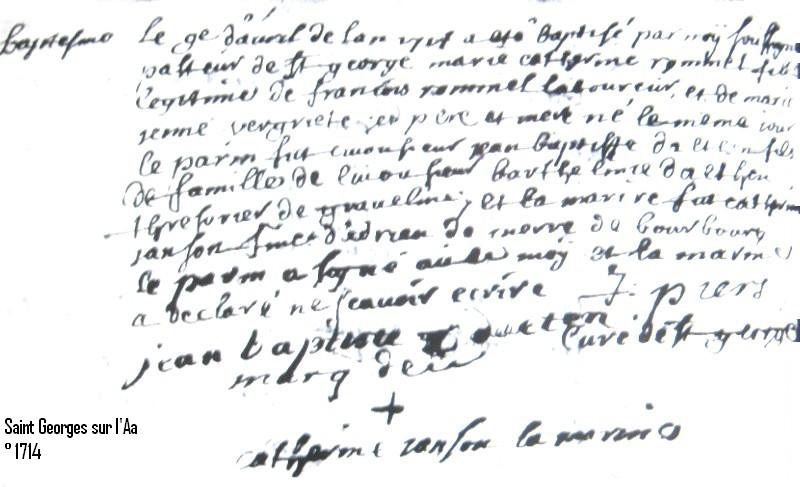 baptesme le 9e d'avril de lan 1714 a esté baptisé par moy soussigne
pasteur de st george marie catherine rommel fils
legitime de francois rommel laboureur, et de marie
jenne vergriete ses pere et mere né le meme jour
le parin fut monsieur jean baptiste fils
de familles de monsieur barthelmie
thresorier de graveline, et la marine fut catherine
janson d'adrien de bourbourg
le parin a signé avec moy et la marine
a declaré ne scavoir ecrire J. piers
jean baptiste curé de st george
marq de
+
catherine janson la marine
Saint Georges sur l'Aa
° 1714